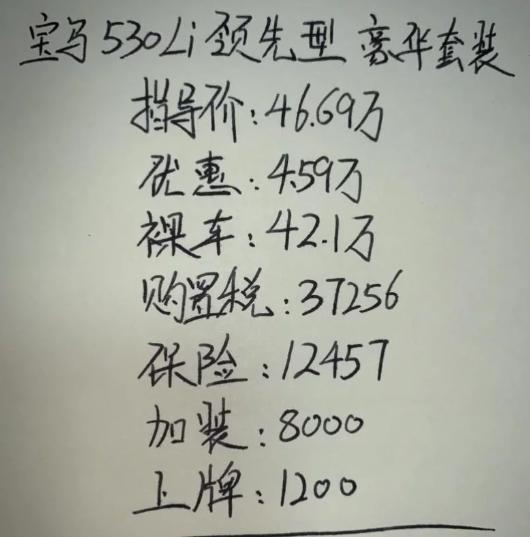 宝马530Li领先型 豪华套装
指导价:46.69万
优惠:4.59万
裸车:42.1万
购置税:37256
保险:12457
加装:8000
上牌:1200